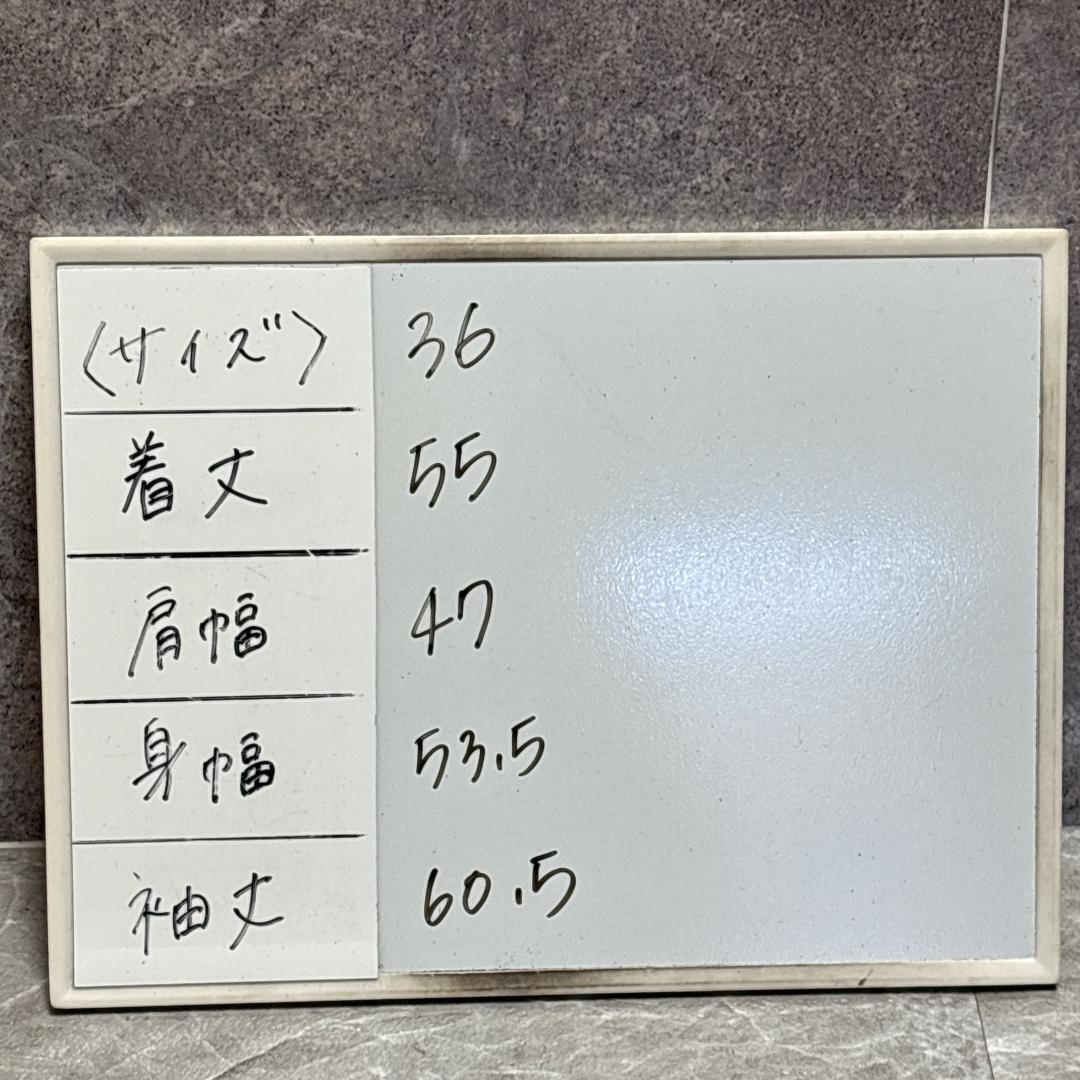 〈サイズ〉 36
着丈 55
肩幅 47
身幅 53.5
袖丈 60.5